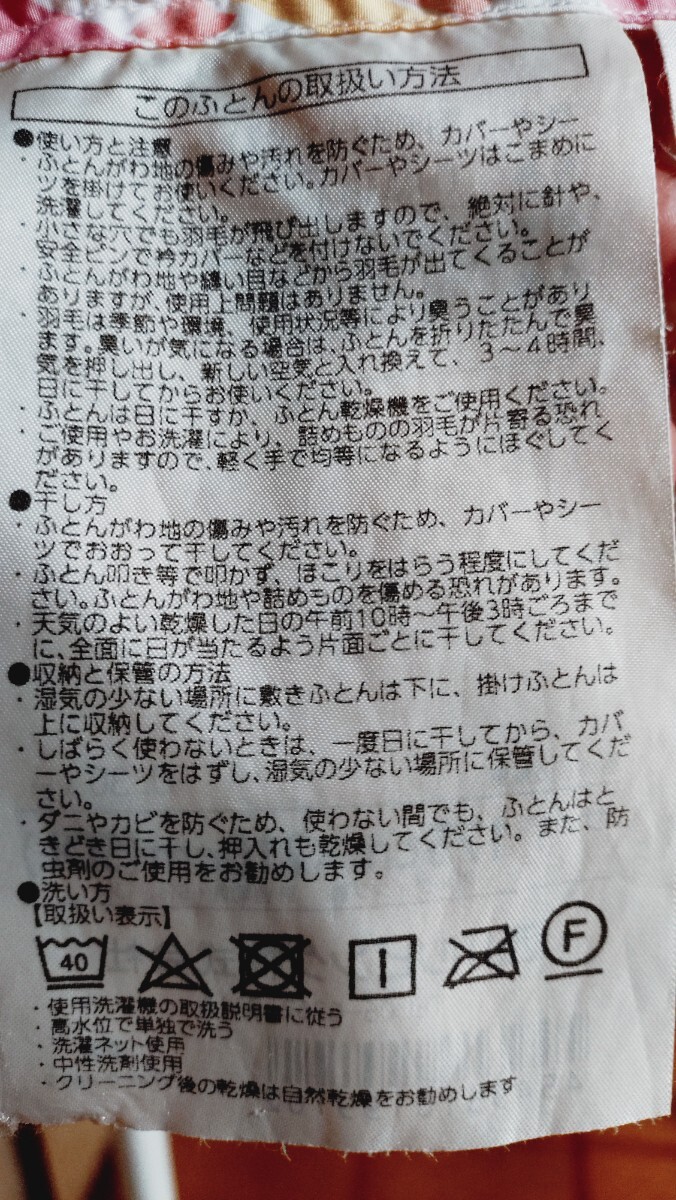 このふとんの取扱い方法
●使い方と注意
・ふとんがわ地の傷みや汚れを防ぐため、カバーやシー
ツを掛けてお使いください。カバーやシーツはこまめに
洗濯してください。
・小さな穴でも羽毛が飛び出しますので、絶対に針や、
安全ピンで衿カバーなどを付けないでください。
・ふとんがわ地や縫い目などから羽毛が出てくることが
ありますが、使用上問題はありません。
・羽毛は季節や環境、使用状況等により臭うことがあり
ます。臭いが気になる場合は、ふとんを折りたたんで臭
気を押し出し、新しい空気と入れ換えて、3〜4時間、
日に干してからお使いください。
・ふとんは日に干すか、ふとん乾燥機をご使用ください。
・ご使用やお洗濯により、詰めものの羽毛が片寄る恐れ
がありますので、軽く手で均等になるようにほぐしてく
ださい。
●干し方
・ふとんがわ地の傷みや汚れを防ぐため、カバーやシー
ツでおおって干してください。
・ふとん叩き等で叩かず、ほこりをはらう程度にしてくだ
さい。ふとんがわ地や詰めものを傷める恐れがあります。
・天気のよい乾燥した日の午前10時〜午後3時ごろまで
に、全面に日が当たるよう片面ごとに干してください。
●収納と保管の方法
・湿気の少ない場所に敷きふとんは下に、掛けふとんは
上に収納してください。
・しばらく使わないときは、一度日に干してから、カバ
ーやシーツをはずし、湿気の少ない場所に保管してくだ
さい。
・ダニやカビを防ぐため、使わない間でも、ふとんはと
きどき日に干し、押入れも乾燥してください。また、防
虫剤のご使用をお勧めします。
●洗い方
【取扱い表示】
40 F
・使用洗濯機の取扱説明書に従う
・高水位で単独で洗う
・洗濯ネット使用
・中性洗剤使用
・クリーニング後の乾燥は自然乾燥をお勧めします